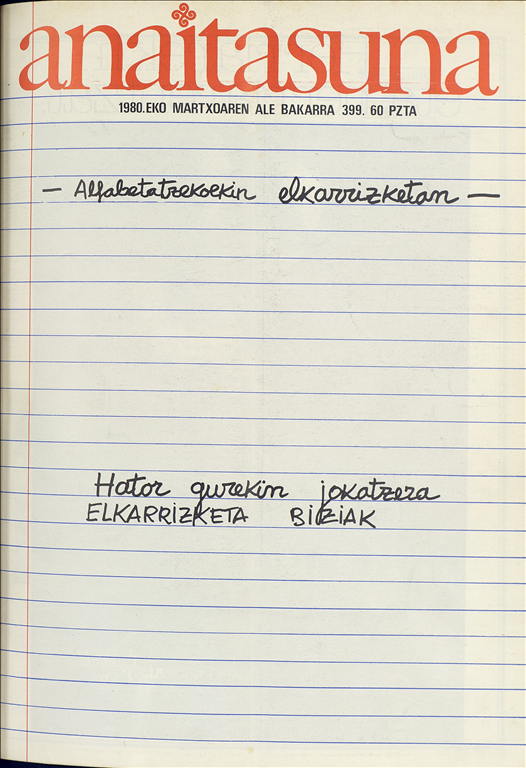 anaitasuna
1980.EKO MARTXOAREN ALE BAKARRA 399. 60 PZTA
— Alfabetatzekoekin elkarrizketan —
Hator gurekin jokatzera
ELKARRIZKETA BIZIAK